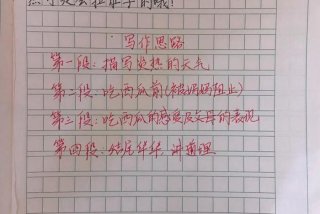 写作思路
第一段：描写炎热的天气
第二段：吃西瓜前(被妈妈阻止)
第三段：吃西瓜的感受及父母的表现
第四段：结尾升华 讲道理